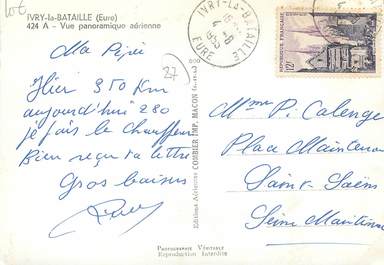 10€
IVRY-la-BATAILLE (Eure)
424 A - Vue panoramique aérienne
27
Ma Pépée
Hier 350 Km
aujourd'hui 280
je fais le chauffeur
Bien reçu ta lettre
Gros baisers
Editions Aériennes COMBIER IMP. MACON
IVRY-LA-BATAILLE
EURE
12F
Mme P. Calenge
Place Maintenon
Saint-Saëns
Seine Maritime
PHOTOGRAPHIE VÉRITABLE
Reproduction Interdite